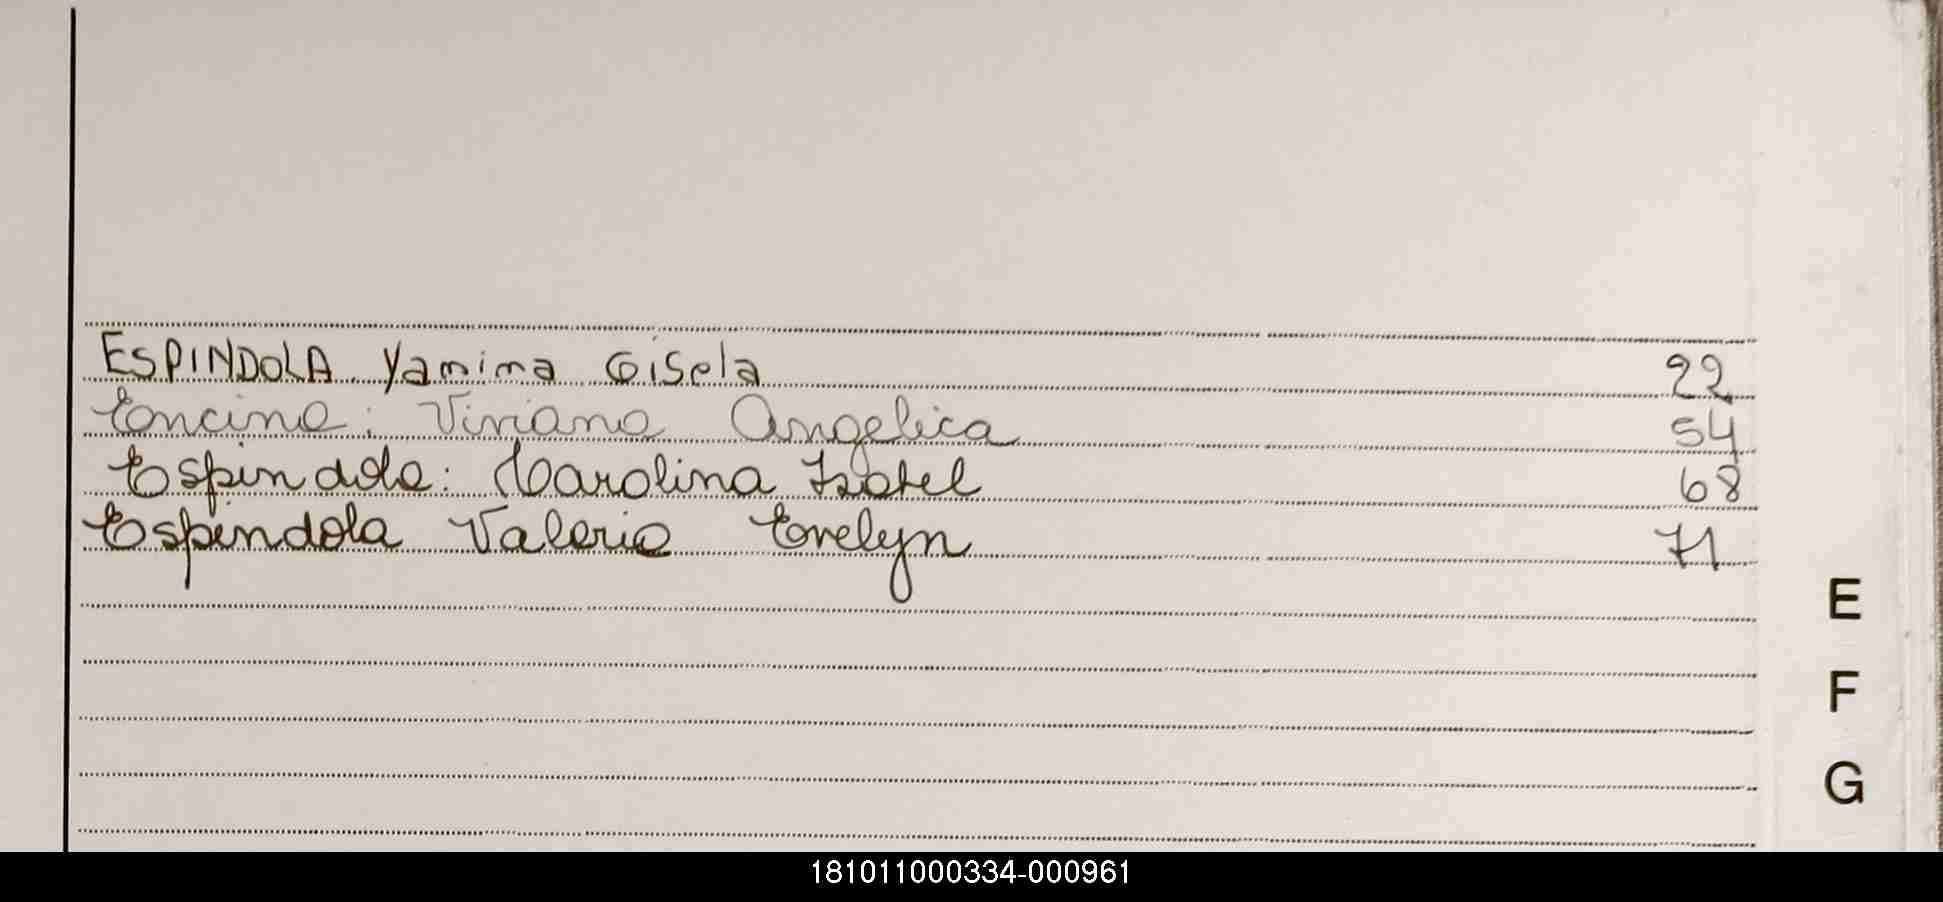 ESPINDOLA Yamima Gisela 22
Encina: Viviana Angelica 54
Espindola: Carolina Isabel 68
Espindola Valeria Evelyn 71
E
F
G
181011000334-000961